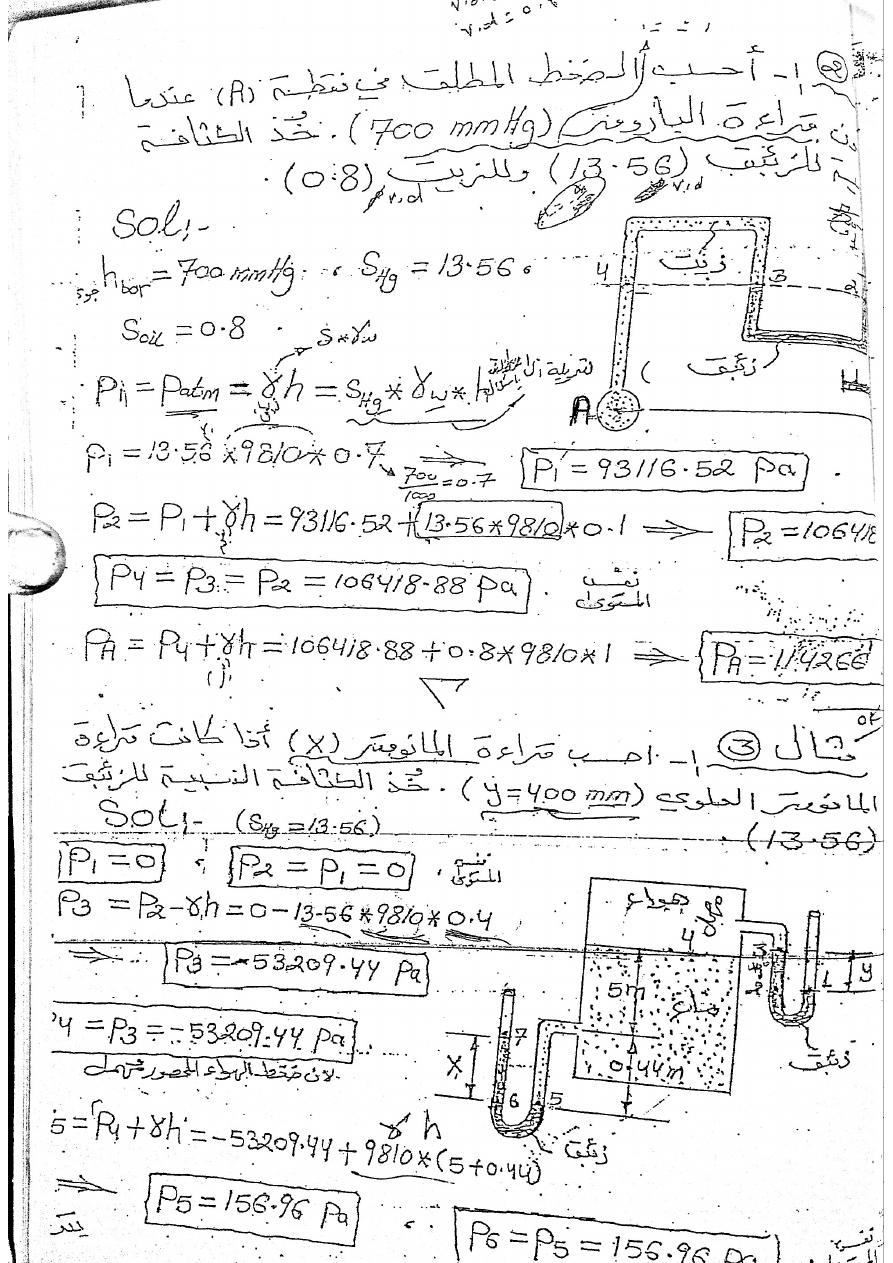 ② ١- أحسب الضغط المطلق في نقطة (A) عندما
قراءة البارومتر (700 mmHg). خُذ الكثافة
للزئبق (13.56) وللزيت (0.8).
Sol:-
h bar = 700 mmHg. ، S Hg = 13.56 ،
S oil = 0.8
S*γw
P1 = Patm = γh = S Hg * γw * h
P1 = 13.56 * 9810 * 0.7 ⇒ P1 = 93116.52 Pa .
700/1000 = 0.7
P2 = P1 + γh = 93116.52 + 13.56*9810*0.1 ⇒ P2 = 106418
P4 = P3 = P2 = 106418.88 Pa . نفس المستوى
PA = P4 + γh = 106418.88 + 0.8*9810*1 ⇒ PA = 114266
زيت
4
3
زئبق
A
مثال ③ ١- احسب قراءة المانومتر (X) أذا كانت قراءة
المانومتر العلوي (y=400 mm). خُذ الكثافة النسبية للزئبق
(13.56)
Sol:- (S Hg = 13.56)
P1 = 0 ، P2 = P1 = 0 . نفس المستوى
P3 = P2 - γh = 0 - 13.56 * 9810 * 0.4
⇒ P3 = -53209.44 Pa
4 = P3 = -53209.44 Pa
لان ضغط الهواء المحصور مهمل
γ h
5 = P4 + γh = -53209.44 + 9810*(5+0.44)
⇒ P5 = 156.96 Pa
، P6 = P5 = 156.96 Pa
نفس
هواء
4
5m
ماء
1
y
زئبق
7
X
0.44m
6
5
زئبق